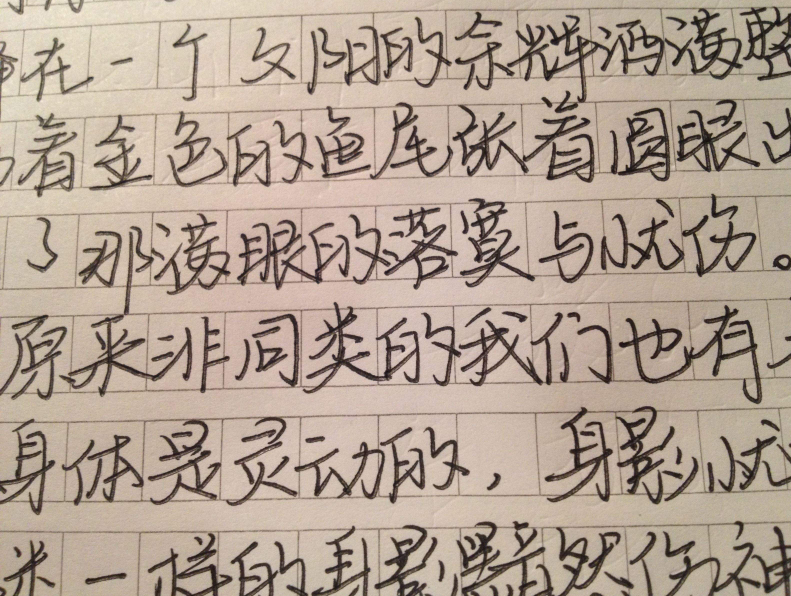 在一个夕阳的余辉洒满整
着金色的鱼尾张着圆眼
了那满眼的落寞与忧伤。
原来非同类的我们也有
身体是灵动的，身影忧
一样的身影黯然伤神